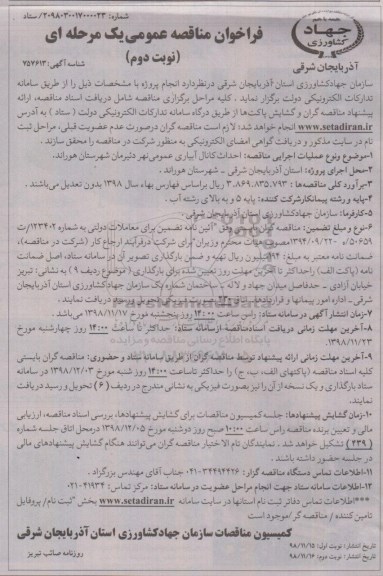 شماره: ۲۰۹۸۰۳۰۰۱۷۰۰۰۰۲۳/ ستاد
جهاد کشاورزی
آذربایجان شرقی
فراخوان مناقصه عمومی یک مرحله ای
(نوبت دوم)
شناسه آگهی: ۷۵۷۶۱۳
سازمان جهادکشاورزی استان آذربایجان شرقی درنظردارد انجام پروژه با مشخصات ذیل را از طریق سامانه
تدارکات الکترونیکی دولت برگزار نماید . کلیه مراحل برگزاری مناقصه شامل دریافت اسناد مناقصه، ارائه
پیشنهاد مناقصه گران و گشایش پاکت‌ها از طریق درگاه سامانه تدارکات الکترونیکی دولت ( ستاد ) به آدرس
www.setadiran.ir انجام خواهد شد؛ لازم است مناقصه گران درصورت عدم عضویت قبلی، مراحل ثبت
نام در سایت مذکور و دریافت گواهی امضای الکترونیکی به منظور شرکت در مناقصه را محقق سازند .
۱-موضوع ونوع عملیات اجرایی مناقصه: احداث کانال آبیاری عمومی نهر دئیرمان شهرستان هوراند.
۲-محل اجرای پروژه: استان آذربایجان شرقی _ شهرستان هوراند .
۳-برآورد کلی مناقصه‌ها : ۳.۸۶۹.۸۳۵.۷۹۳ ریال براساس فهارس بهاء سال ۱۳۹۸ بدون تعدیل می‌باشند .
۴-پایه و رشته پیمانکار شرکت کننده: پایه ۵ و به بالای رشته آب .
۵-کارفرما: سازمان جهاد کشاورزی استان آذربایجان شرقی .
۶-نوع و مبلغ تضمین: مناقصه گران می بایستی وفق "آئین نامه تضمین برای معاملات دولتی به شماره ۱۲۳۴۰۲/ت
۵۰۶۵۹/ه ۱۳۹۴/۰۹/۲۲ مصوب هیات محترم وزیران" برای شرکت درفرآیند ارجاع کار (شرکت در مناقصه)،
ضمانت نامه معتبر به مبلغ: ۱۹۴ میلیون ریال تهیه و ضمن بارگذاری تصویر آن در سامانه ستاد، اصل ضمانت
نامه (پاکت الف) را حداکثر تا آخرین مهلت روز تعیین شده برای بارگذاری ( موضوع ردیف ۹ ) به نشانی: تبریز
خیابان آزادی _ حدفاصل میدان جهاد و لاله _ ساختمان شماره یک سازمان جهادکشاورزی استان آذربایجان
شرقی _ اداره امور پیمانها و قراردادها
۷-زمان انتشار آگهی در سامانه ستاد: راس ساعت ۱۴:۰۰ روز پنجشنبه مورخ ۱۳۹۸/۱۱/۱۷ می‌باشد .
۸-آخرین مهلت زمانی دریافت اسناد مناقصه از سامانه ستاد: حداکثر تا ساعت ۱۴:۰۰ روز چهارشنبه مورخ
۱۳۹۸/۱۱/۲۳ .
۹-آخرین مهلت زمانی ارائه پیشنهاد توسط مناقصه گران از طریق سامانه ستاد و حضوری: مناقصه گران بایستی
کلیه اسناد مناقصه (پاکتهای الف، ب، ج ) را حداکثر تا ساعت ۱۴:۰۰ روز شنبه مورخ ۱۳۹۸/۱۲/۰۳ در سامانه
ستاد بارگذاری و یک نسخه از آن را نیز بصورت فیزیکی به نشانی مندرج در ردیف ( ۶ ) تحویل و رسید دریافت
نمایند.
۱۰-زمان گشایش پیشنهادها: جلسه کمیسیون مناقصات برای گشایش پیشنهادها، بررسی اسناد مناقصه، ارزیابی
مالی و تعیین برنده مناقصه راس ساعت ۱۰:۰۰ صبح روز دوشنبه مورخ ۱۳۹۸/۱۲/۰۵ درمحل اتاق جلسه شماره
( ۲۳۹ ) تشکیل خواهد شد . نمایندگان تام الاختیار مناقصه گران می‌توانند هنگام گشایش پیشنهادهای مالی
در جلسه حضور داشته باشند .
۱۱-اطلاعات تماس دستگاه مناقصه گزار: ۰۲۱-۳۴۴۹۴۴۲۶ جناب آقای مهندس بزرگزاد .
۱۲-اطلاعات سامانه ستاد جهت انجام مراحل عضویت در سامانه ستاد: مرکز تماس: ۴۱۹۳۴-۰۲۱
***اطلاعات تماس دفاتر ثبت نام استانها در سایت سامانه www.setadiran.ir بخش "ثبت نام/ پروفایل
تامین کننده / مناقصه گر/موجود است
کمیسیون مناقصات سازمان جهادکشاورزی استان آذربایجان شرقی
تاریخ انتشار: نوبت اول: ۹۸/۱۱/۱۵
تاریخ انتشار: نوبت دوم: ۹۸/۱۱/۱۶
روزنامه صائب تبریز
پایگاه اطلاع رسانی مناقصه و مزایده